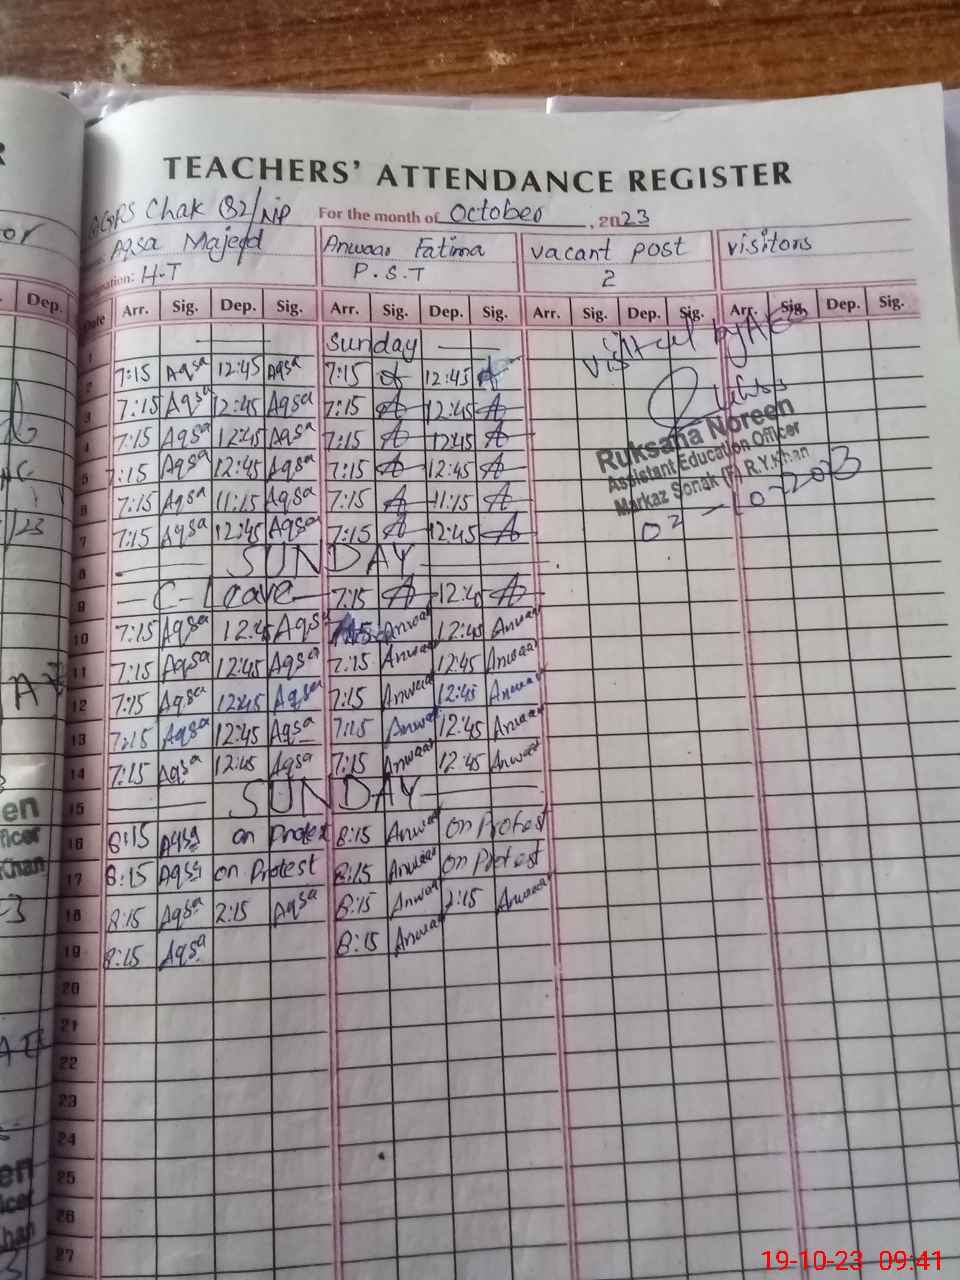 TEACHERS' ATTENDANCE REGISTER
Chak 82/NP For the month of October, 2023
Aqsa Majeed Anwaar Fatima vacant post visitors
H-T P.S.T 2
Dep. Date Arr. Sig. Dep. Sig. Arr. Sig. Dep. Sig. Arr. Sig. Dep. Sig. Arr. Sig. Dep. Sig.
1 Sunday
2 7:15 Aqsa 12:45 Aqsa 7:15 A 12:45 A
3 7:15 Aqsa 12:45 Aqsa 7:15 A 12:45 A
4 7:15 Aqsa 12:45 Aqsa 7:15 A 12:45 A
5 7:15 Aqsa 12:45 Aqsa 7:15 A 12:45 A
6 7:15 Aqsa 11:15 Aqsa 7:15 A 11:15 A
7 7:15 Aqsa 12:45 Aqsa 7:15 A 12:45 A
8 SUNDAY
9 C-Leave 7:15 A 12:45 A
10 7:15 Aqsa 12:45 Aqsa 7:15 Anwaar 12:45 Anwaar
11 7:15 Aqsa 12:45 Aqsa 7:15 Anwaar 12:45 Anwaar
12 7:15 Aqsa 12:45 Aqsa 7:15 Anwaar 12:45 Anwaar
13 7:15 Aqsa 12:45 Aqsa 7:15 Anwaar 12:45 Anwaar
14 7:15 Aqsa 12:45 Aqsa 7:15 Anwaar 12:45 Anwaar
15 SUNDAY
16 8:15 Aqsa on Protest 8:15 Anwaar on Protest
17 8:15 Aqsa on Protest 8:15 Anwaar on Protest
18 8:15 Aqsa 2:15 Aqsa 8:15 Anwaar 2:15 Anwaar
19 8:15 Aqsa 8:15 Anwaar
20
21
22
23
24
25
26
27
visited by AEO
Ruksana Noreen
Assistant Education Officer
Markaz Sonak (F) R.Y.Khan
02-10-2023
19-10-23 09:41